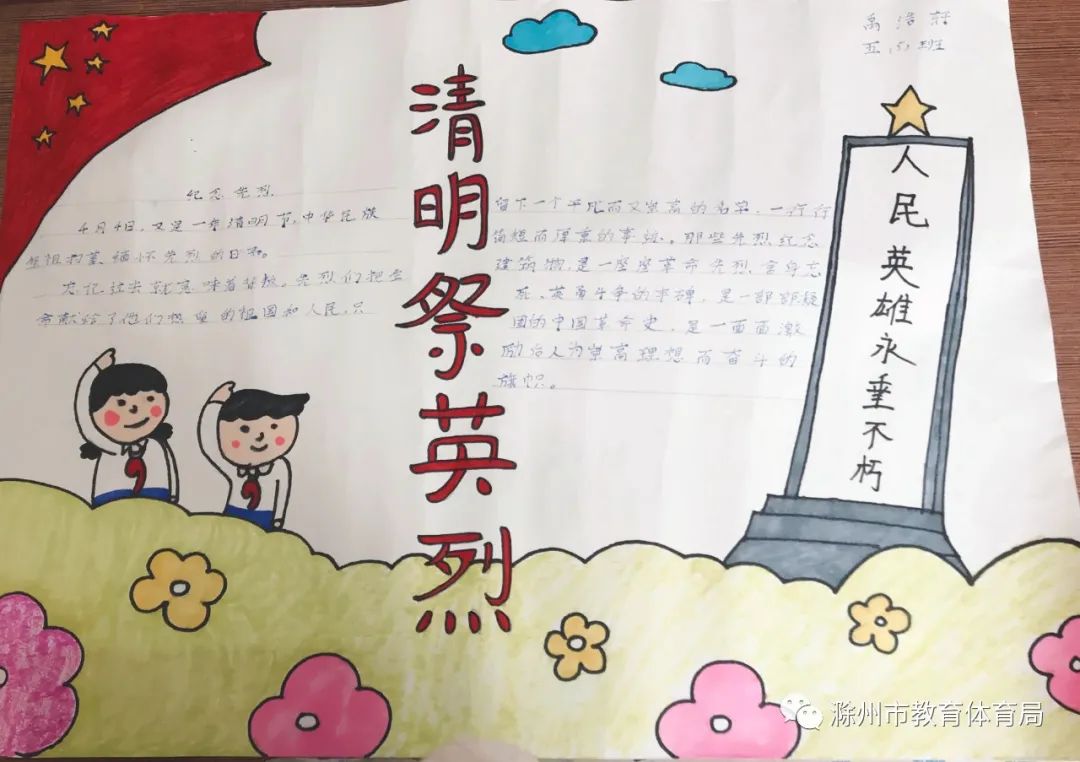 禹浩轩
五(5)班
清明祭英烈
纪念先烈
4月4日,又是一年清明节,中华民族
祭祖扫墓、缅怀先烈的日子。
忘记过去就意味着背叛。先烈们把生
命献给了他们热爱的祖国和人民,只
留下一个平凡而又崇高的名字,一行行
简短而厚重的事迹。那些先烈纪念
建筑物,是一座座革命先烈舍身忘
死、英勇斗争的丰碑,是一部部凝
固的中国革命史,是一面面激
励后人为崇高理想而奋斗的
旗帜。
人民英雄永垂不朽
滁州市教育体育局